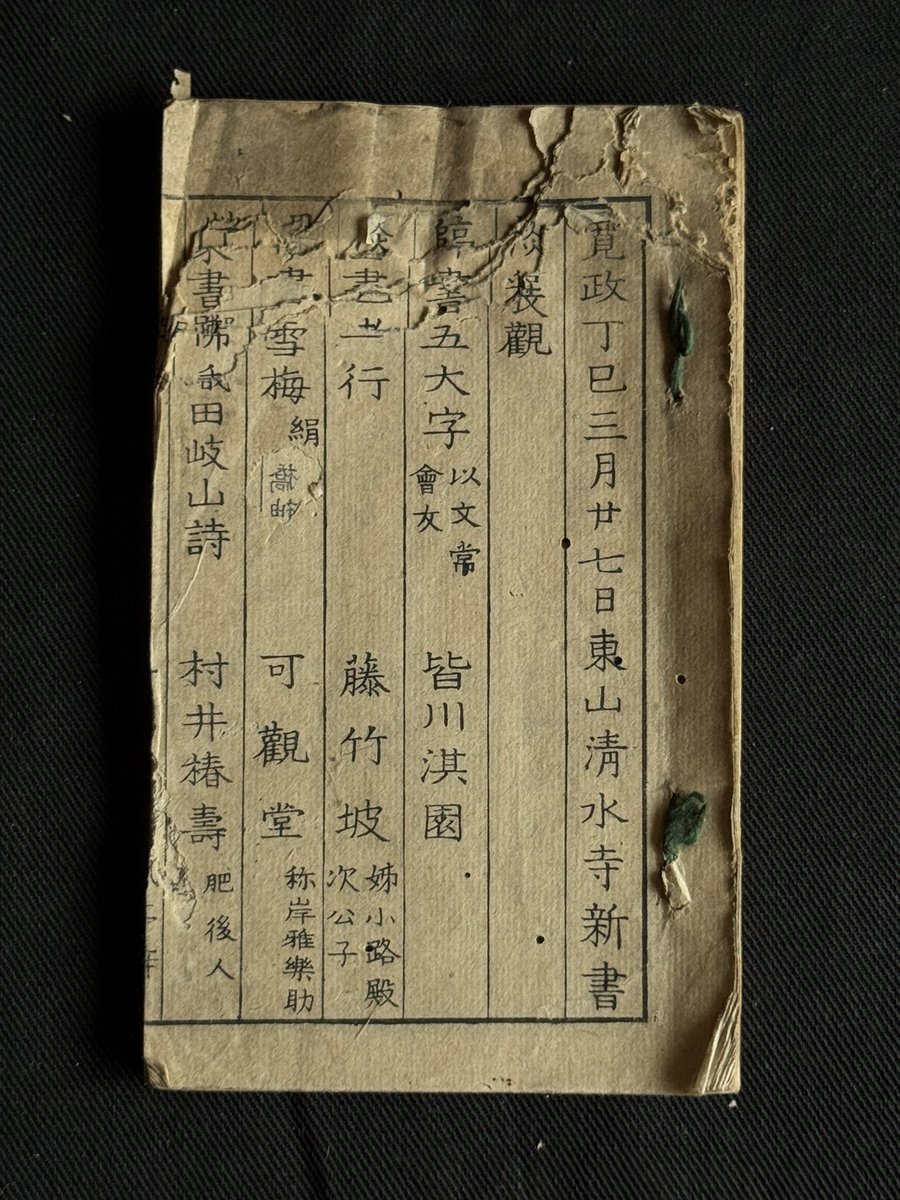 寛政丁巳三月廿七日東山清水寺新書
展觀
書五大字 以文常會友 皆川淇園
書 行 藤竹坡 姊小路殿次公子
書 雪梅 絹 可觀堂 称岸雅樂助
書 田岐山詩 村井椿壽 肥後人